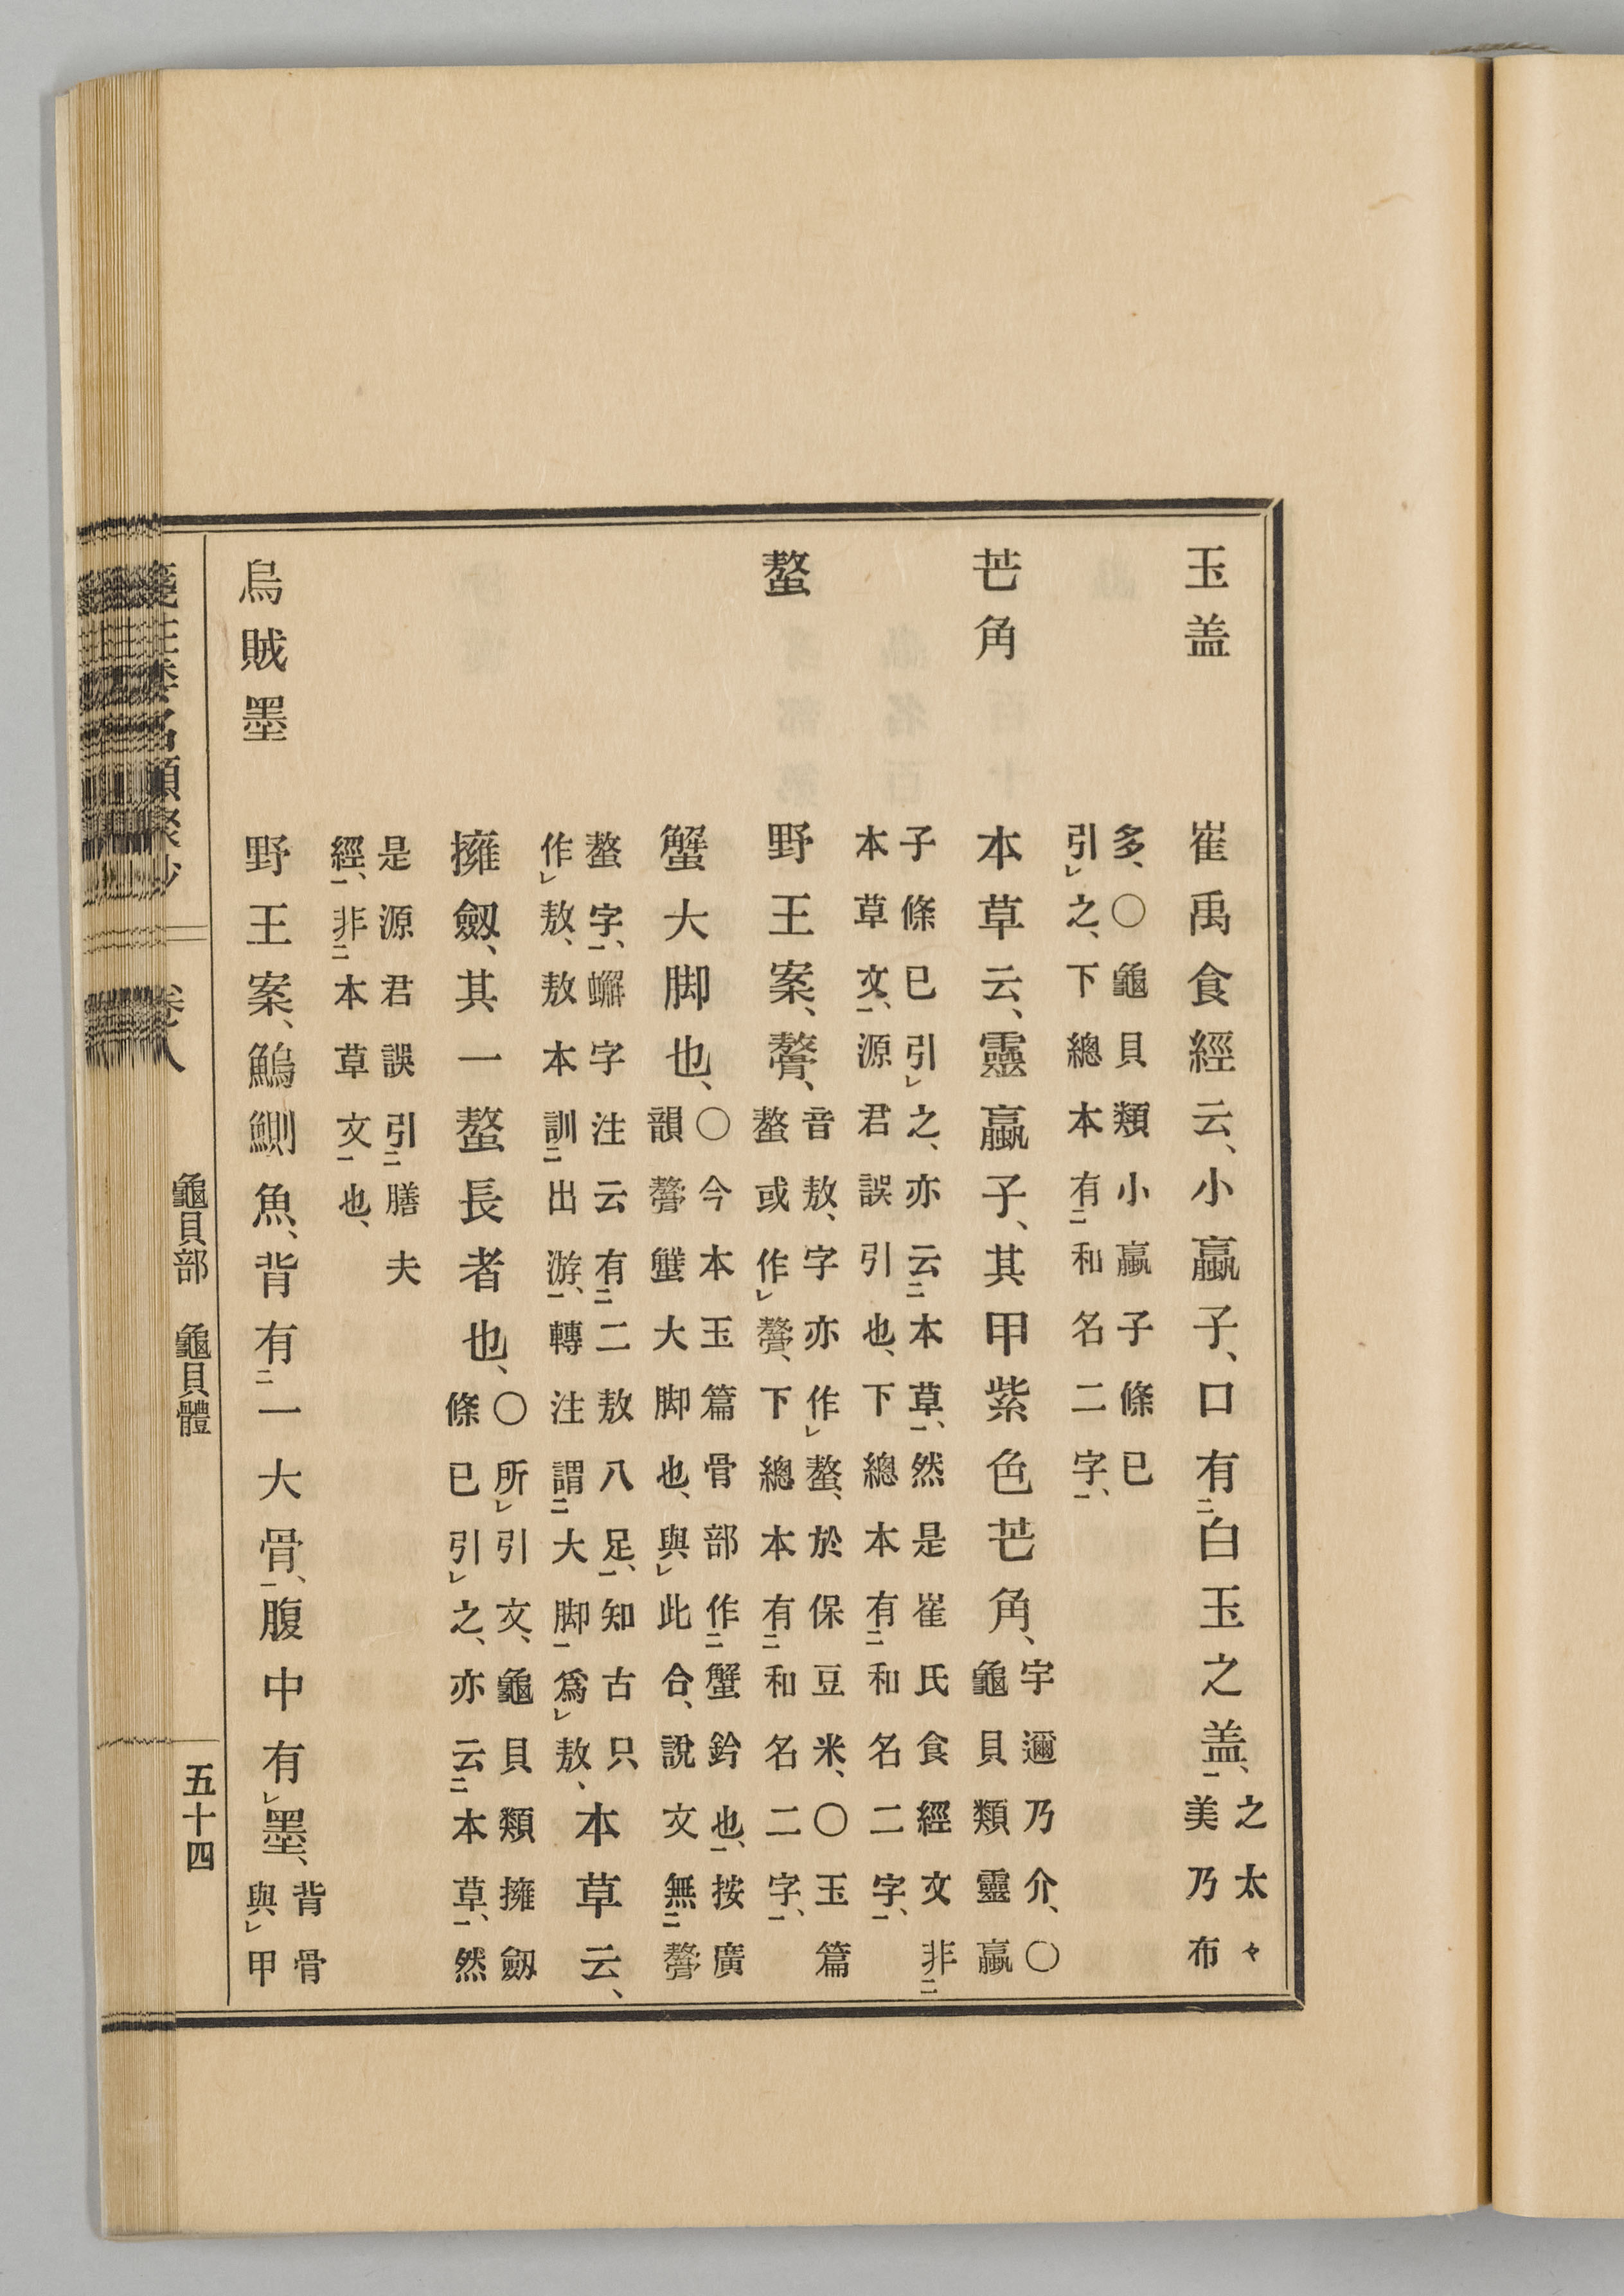 玉盖　崔禹食經云、小蠃子、口有㆓白玉之盖㆒、
之太々
美乃布
多、〇龜貝類小蠃子條已
引㆑之、下總本有㆓和名二字㆒、
芒角　本草云、靈蠃子、其甲紫色芒角、
宇邇乃介、〇
龜貝類靈蠃
子條已引㆑之、亦云㆓本草㆒、然是崔氏食經文非㆓
本草文㆒、源君誤引也、下總本有㆓和名二字㆒、
螯　野王案、䯠、
音敖、字亦作㆑螯、於保豆米、〇玉篇
螯或作㆑䯠、下總本有㆓和名二字㆒、
蟹大脚也、
〇今本玉篇骨部作㆓蟹鈐也㆒、按廣
韻䯠蟹大脚也、與㆑此合、說文無㆓䯠
螯字㆒、蠏字注云有㆓二敖八足㆒、知古只
作㆑敖、敖本訓㆓出游㆒、轉注謂㆓大脚㆒爲㆑敖、
本草云、
擁劔、其一螯長者也、
〇所㆑引文、龜貝類擁劔
條已引㆑之、亦云㆓本草㆒、然
是源君誤引㆓膳夫
經㆒、非㆓本草文㆒也、
烏賊墨　野王案、鰞鰂魚、背有㆓一大骨㆒、腹中有㆑墨、
背骨
與㆑甲
箋注倭名類聚抄　卷八　龜貝部　龜貝體　五十四